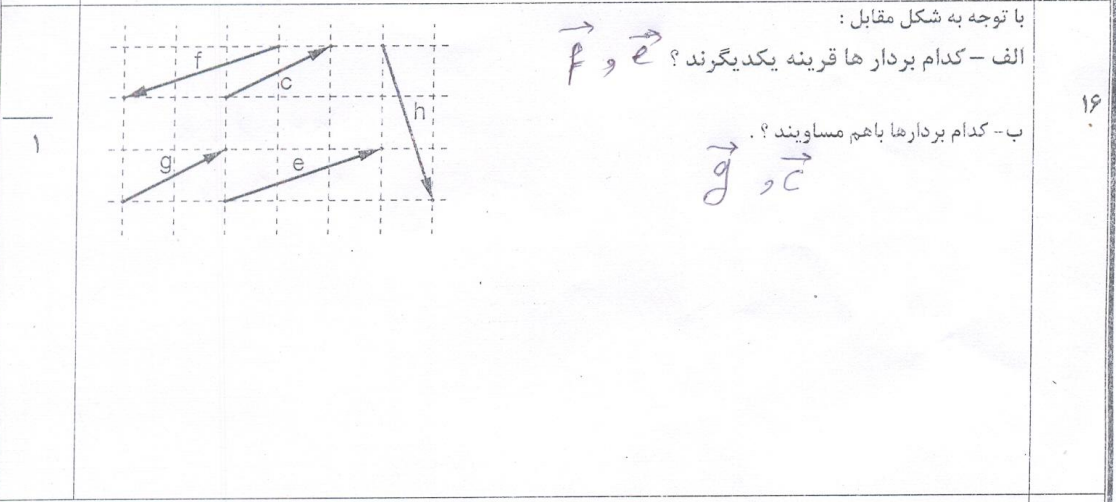 با توجه به شکل مقابل :
الف – کدام بردار ها قرینه یکدیگرند ؟ e و f
۱۶
ب- کدام بردارها باهم مساویند ؟ .
c و g
۱
f
c
h
g
e